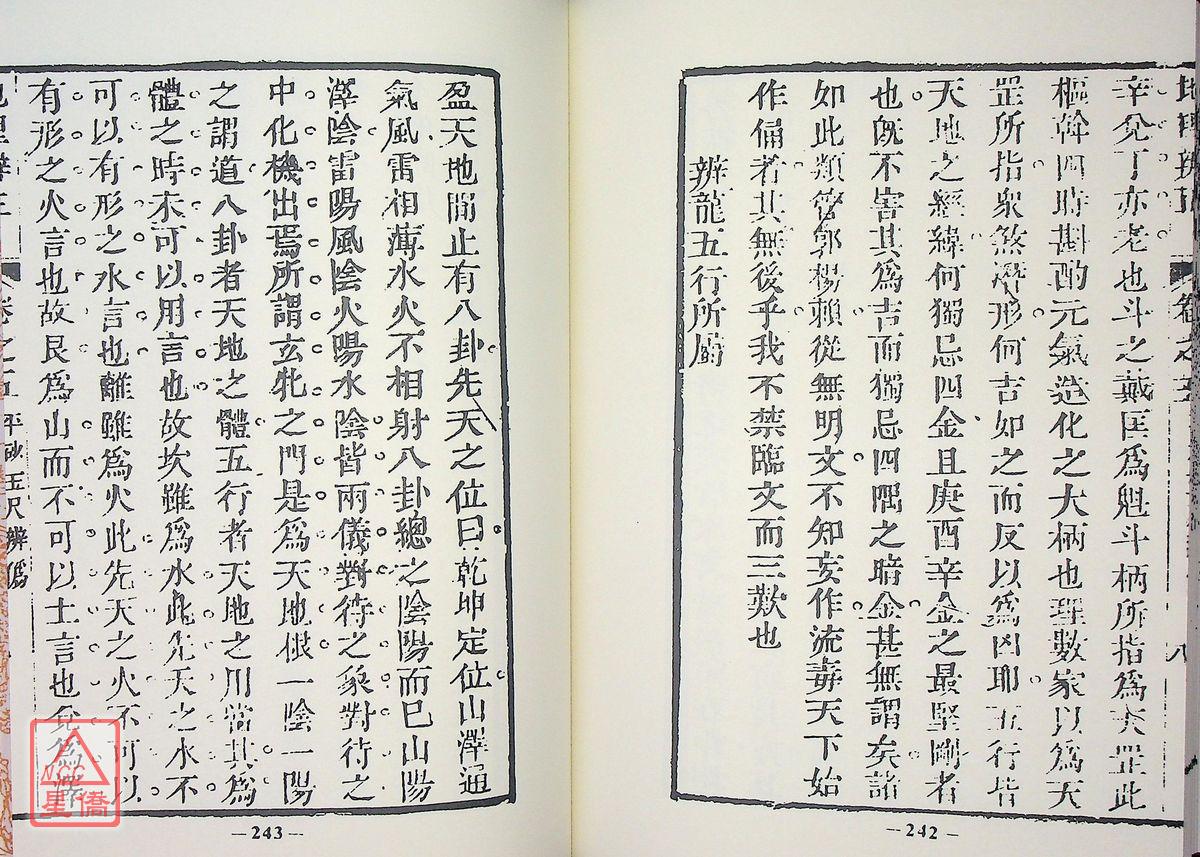 地理辨正
卷之五
八
辛兌丁亦老也斗之戴匡爲魁斗柄所指爲天罡此
樞幹四時斟酌元氣造化之大柄也理數家以爲天
罡所指衆煞潛形何吉如之而反以爲凶耶五行皆
天地之經緯何獨忌四金且庚酉辛金之最堅剛者
也旣不害其爲吉而獨忌四隅之暗金甚無謂矣諸
如此類管郭楊賴從無明文不知妄作流毒天下始
作俑者其無後乎我不禁臨文而三歎也
辨龍五行所屬
—242—
盈天地間止有八卦先天之位曰乾坤定位山澤通
氣風雷相薄水火不相射八卦總之陰陽而已山陽
澤陰雷陽風陰火陽水陰皆兩儀對待之象對待之
中化機出焉所謂玄牝之門是爲天地根一陰一陽
之謂道八卦者天地之體五行者天地之用當其爲
體之時未可以用言也故坎雖爲水此先天之水不
可以有形之水言也離雖爲火此先天之火不可以
有形之火言也故艮爲山而不可以土言也兌爲澤
地理辨正
卷之五
平砂玉尺辨僞
—243—
NCC
星僑